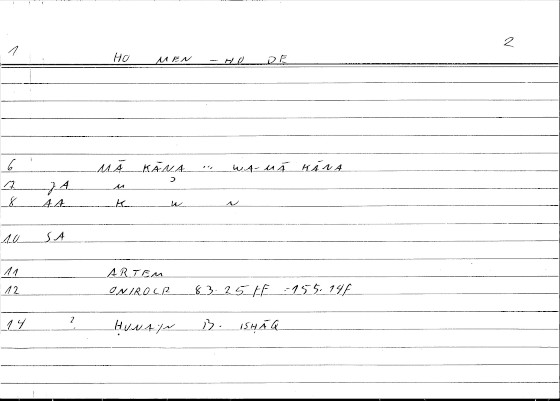 1 HO MEN - HO DE 2
6 MĀ KĀNA ... WA-MĀ KĀNA
7 JA M ɔ
8 AA K W N
10 SA
11 ARTEM
12 ONIROCR 83.25 ff = 155.14f
14 ? ḤUNAYN B. ISḤĀQ